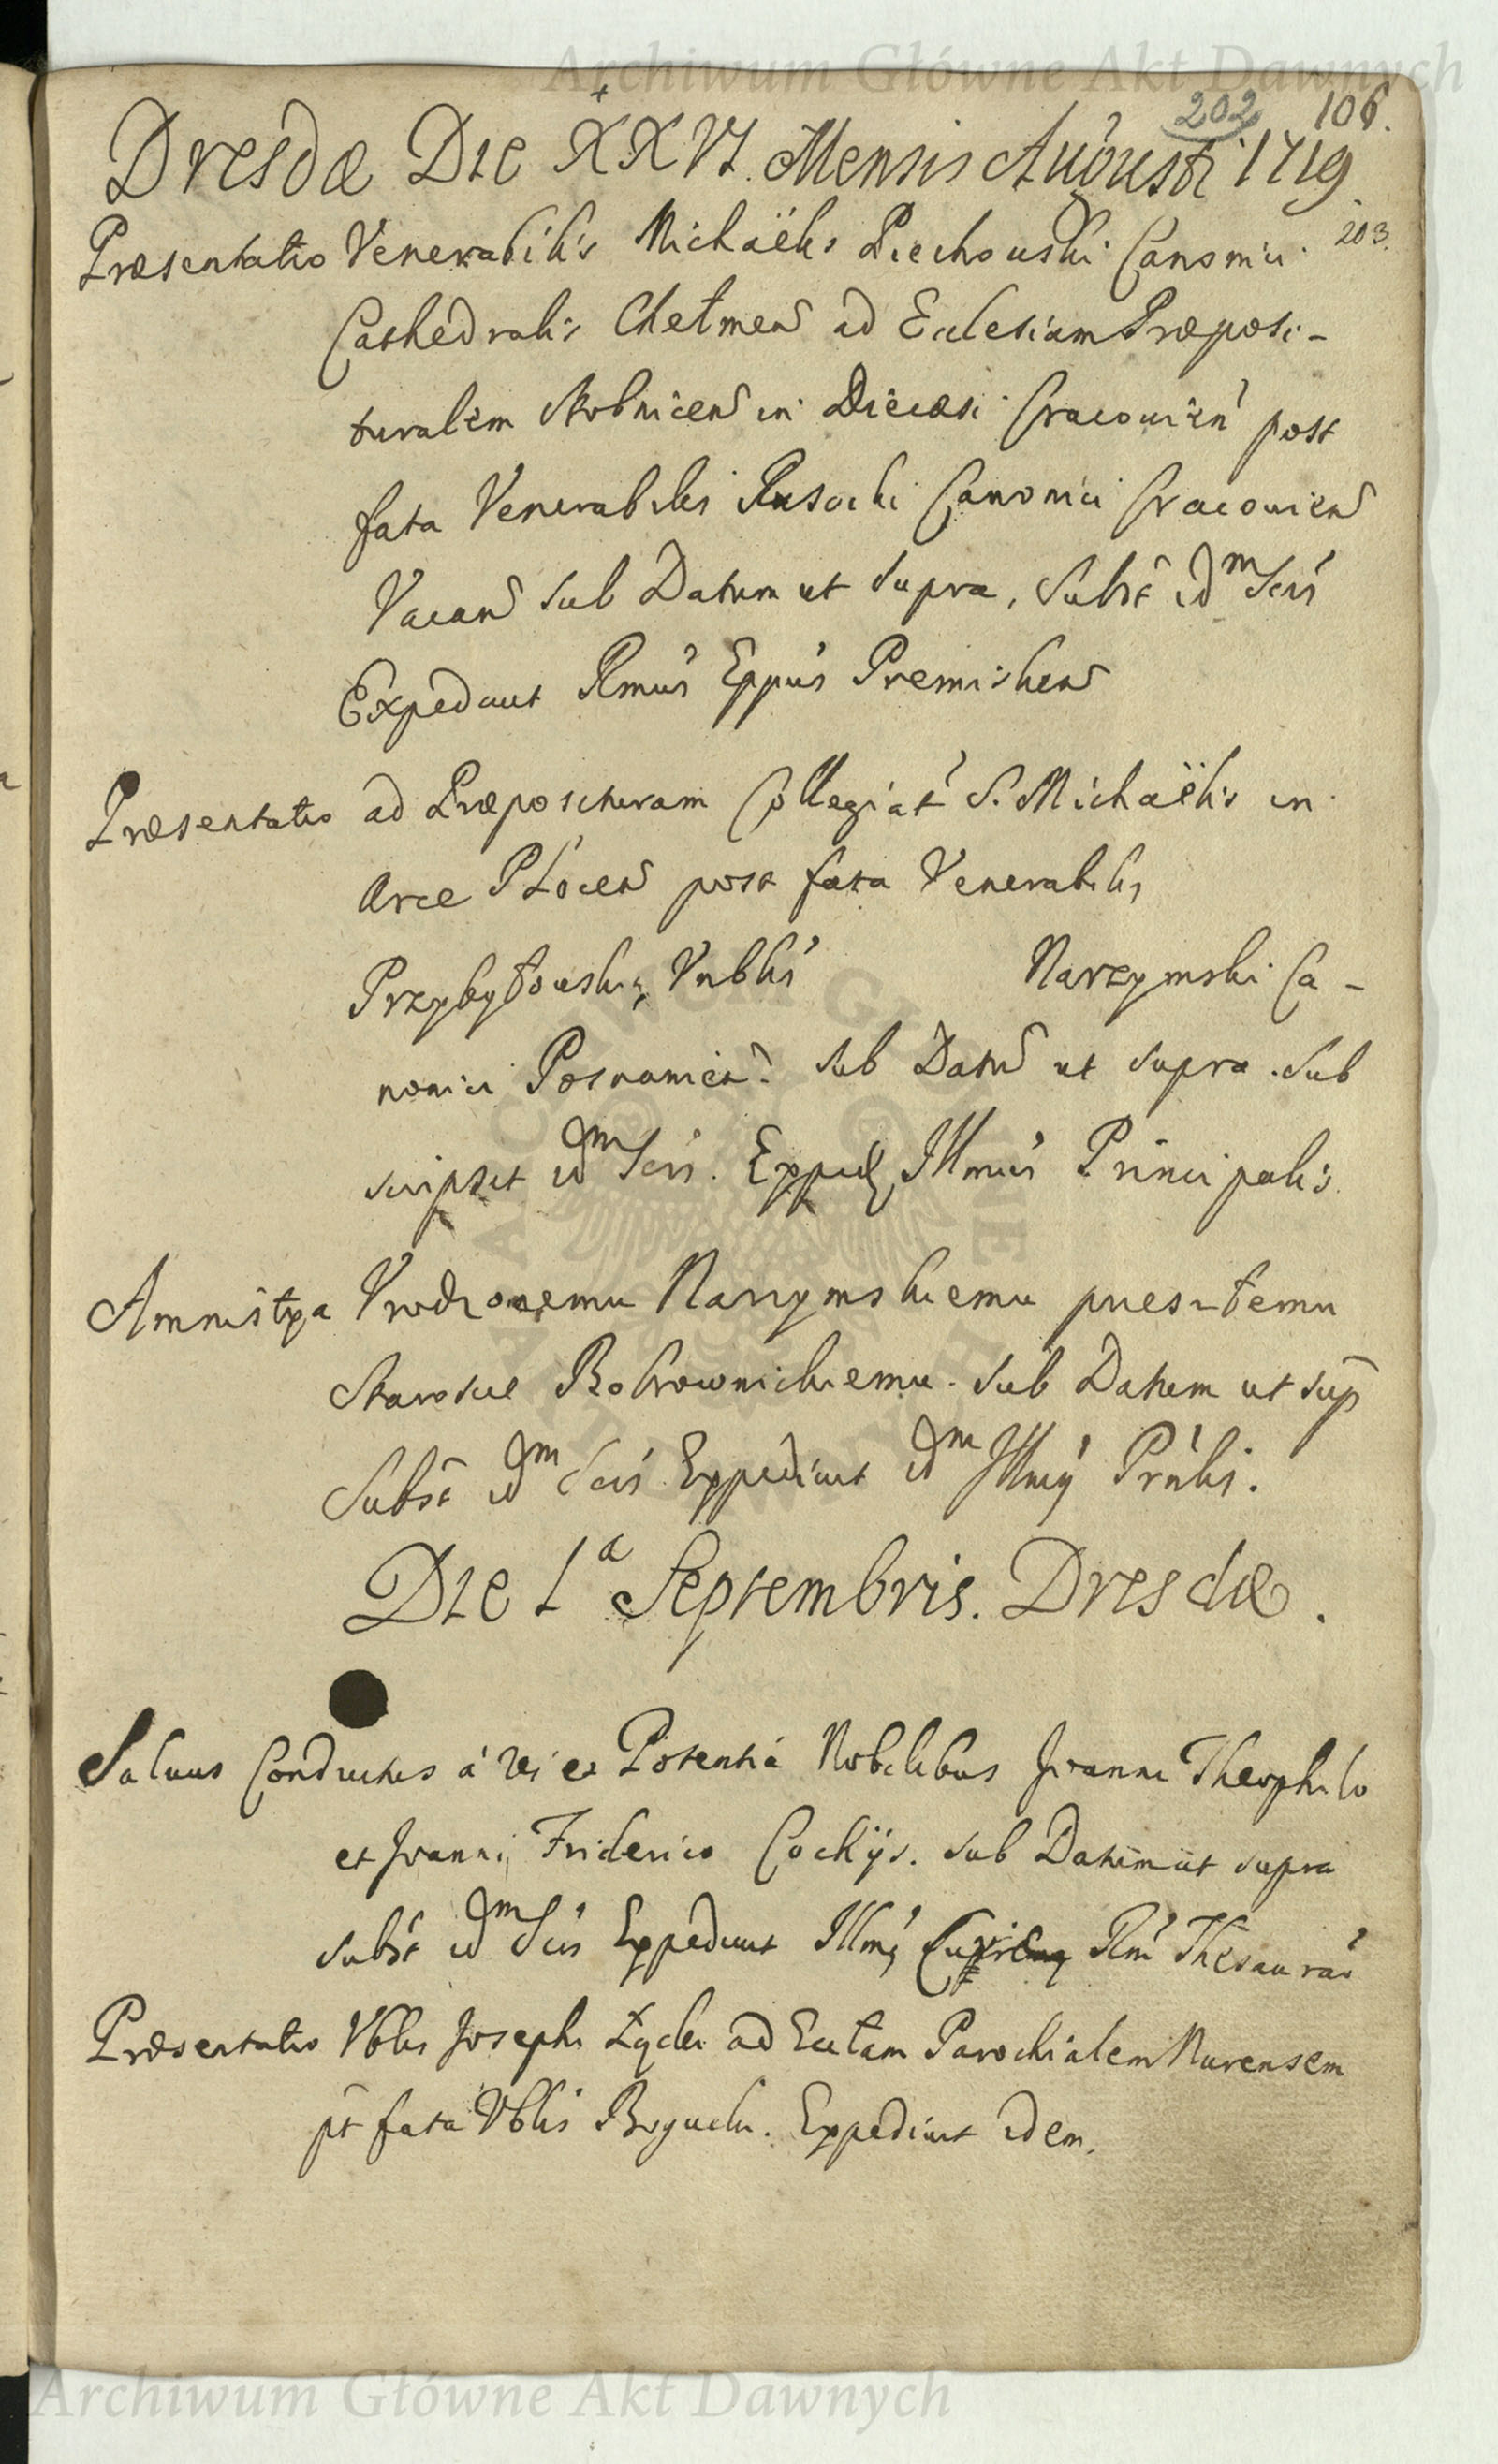 Archiwum Główne Akt Dawnych
202 106.
Dresdæ Die XXVI. Mensis Augusti 1719
203.
Præsentatio Venerabilis Michaëlis Piechowski Canonici
Cathedralis Chełmen ad Ecclesiam Præposi-
turalem Stobnicen in Diæcesi Cracovien post
fata Venerabilis Rusocki Canonici Cracovien
Vacan sub Datum ut supra, Subst idm Scrs
Expediuit Rmus Eppus Premislien
Præsentatio ad Præposituram Collegiat S. Michaëlis in
Arce Płocen post fata Venerabilis
Przybyłowski, Vnblis Narzymski Ca-
nonici Posnanien. sub Datum ut supra. Sub
scripsit idm Scrs. Expped Illmus Principalis.
Amnistya Vrodzonemu Narzymskiemu przeszłemu
Staroscie Bobrownickiemu. sub Datum ut sup
Subst idm Scrs Exppediuit idm Illmus Prnlis.
Die 1a Septembris. Dresdæ.
Salvus Conductus a Vi et Potentia Nobilibus Joanni Theophilo
et Joanni Friderico Cockijs. sub Datum ut supra
subst idm Scrs Exppediuit Illmus Rmi Thesaurar
Præsentatio Vblis Josephi Łącki ad Eccłam Parochialem Nurensem
pt fata Vblis Bogucki. Exppediuit idem.
Archiwum Główne Akt Dawnych